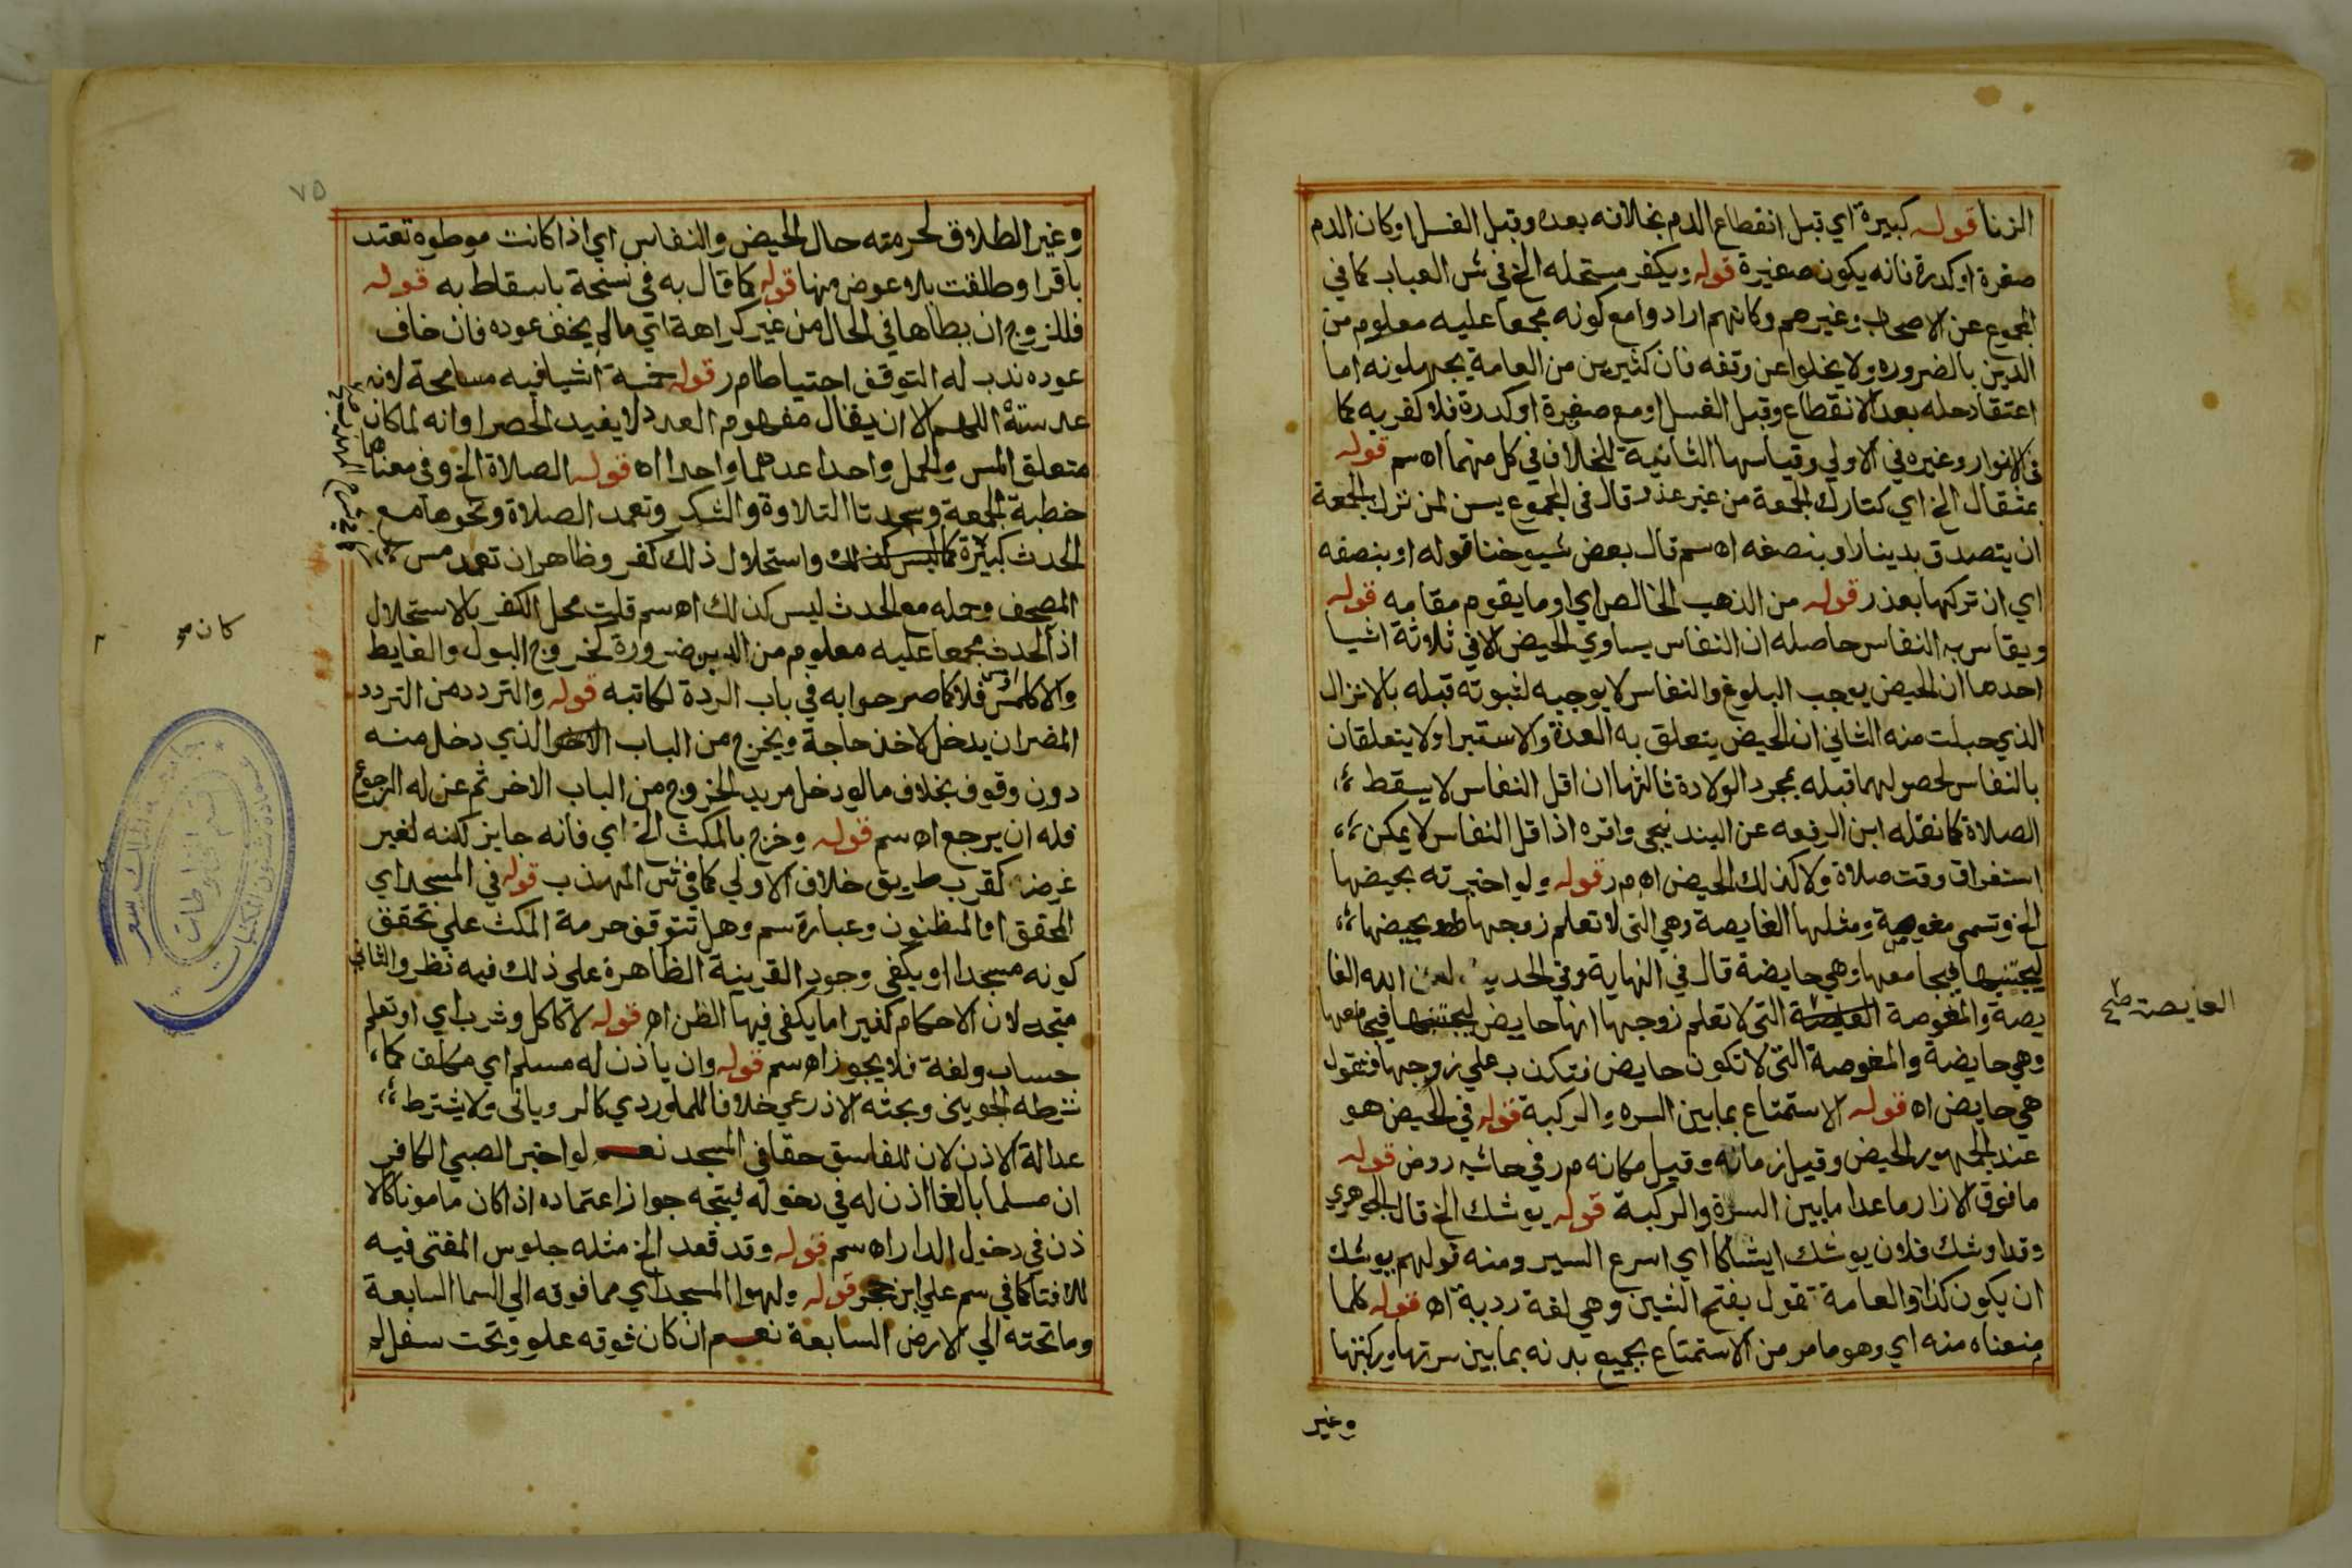 الزنا قوله كبيرة اي قبل انقطاع الدم بخلافه بعده وقبل الغسل او كان الدم
صفرة او كدرة فانه يكون صغيرة قوله ويكفر مستحله الخ في ش العباب كما في
المجموع عن الاصحاب وغيرهم وكانهم ارادوا مع كونه مجمعا عليه معلوم من
الدين بالضروره ولا يخلوا عن وقفه فان كثيرين من العامة يجهلونه اما
اعتقاد حله بعد الانقطاع وقبل الغسل او مع صفرة او كدرة فلا كفر به كما
في الانوار وغيره في الاولي وقياسها الثانية للخلاف في كل منهما اه سم قوله
بمثقال الخ اي كتارك الجمعة من غير عذر قال في المجموع يسن لمن ترك الجمعة
ان يتصدق بدينار او بنصفه اه سم قال بعض شيوخنا قوله او بنصفه
اي ان تركها بعذر قوله من الذهب الخالص اي او ما يقوم مقامه قوله
ويقاس به النفاس حاصله ان النفاس يساوي الحيض الا في ثلاثة اشيا
احدها ان الحيض يوجب البلوغ والنفاس لا يوجبه لثبوته قبله بالانزال
الذي حبلت منه الثاني ان الحيض يتعلق به العدة والاستبرا ولا يتعلقان
بالنفاس لحصولهما قبله بمجرد الولادة ثالثها ان اقل النفاس لا يسقط
الصلاة كما نقله ابن الرفعه عن البندنيجي واقره اذ اقل النفاس لا يمكن
استغراق وقت صلاة ولا كذلك الحيض اه م ر قوله ولو اخبرته بحيضها
الخ وتسمي مغوصة ومثلها الغايصة وهي التي لا تعلم زوجها بحيضها
ليجتنبها فيجامعها وهي حايضة قال في النهاية وفي الحديث لعن الله الغا
يصة والمغوصة الغايصة التي لا تعلم زوجها انها حايض ليجتنبها فيجامعها
وهي حايضة والمغوصة التي لا تكون حايض فتكذب علي زوجها فتقول
هي حايض اه قوله الاستمتاع بما بين السره والركبة قوله في الحيض هو
عند الجمهور الحيض وقيل زمانه وقيل مكانه م ر في حاشيه روض قوله
ما فوق الازار ما عدا ما بين السرة والركبة قوله يوشك الخ قال الجوهري
وقد اوشك فلان يوشك ايشاكا اي اسرع السير ومنه قولهم يوشك
ان يكون كذا والعامة تقول بفتح الشين وهي لغة ردية اه قوله كلما
منعناه منه اي وهو ما مر من الاستمتاع بجميع بدنه بما بين سرتها وركبتها
وغير
الغايصة صح
٧٥
وغير الطلاق لحرمته حال الحيض والنفاس اي اذا كانت موطوه تعتد
باقرا وطلقت بلا عوض منها قوله كما قال به في نسخة باسقاط به قوله
فللزوج ان يطاها في الحال من غير كراهة اتي مالم يخف عوده فان خاف
عوده ندب له التوقف احتياطا م ر قوله خمسة اشيا فيه مسامحة لانه
عد ستة اللهم الا ان يقال مفهوم العدد لا يفيد الحصر او انه لما كان
متعلق المس والحمل واحدا عدهما واحدا اه قوله الصلاة الخ وفي معناها
خطبة الجمعة وسجدتا التلاوة والشكر وتعمد الصلاة ونحوها مع
الحدث كبيرة واستحلال ذلك كفر وظاهر ان تعمد مس
المصحف وحمله مع الحدث ليس كذلك اه سم قلت محل الكفر بالاستحلال
اذ الحدث مجمعا عليه معلوم من الدين ضرورة كخروج البول والغايط
والا كالمس فلا كما صرحوا به في باب الردة لكاتبه قوله والتردد من التردد
المضر ان يدخل لاخذ حاجة ويخرج من الباب الذي دخل منه
دون وقوف بخلاف ما لو دخل مريد الخروج من الباب الاخر ثم عن له الرجوع
فله ان يرجع اه سم قوله وخرج بالمكث الخ اي فانه جايز لكنه لغير
غرض كقرب طريق خلاف الاولي كما في ش المهذب قوله في المسجد اي
المحقق او المظنون وعبارة سم وهل تتوقف حرمة المكث علي تحقق
كونه مسجدا او يكفي وجود القرينة الظاهرة علي ذلك فيه نظر والثاني
متجه لان الاحكام كغيرا ما يكفي فيها الظن اه قوله لا كاكل وشرب اي او تعلم
حساب ولغة فلا يجوز اه سم قوله وان ياذن له مسلم اي مكلف كما
شرطه الجويني وبحثه الاذرعي خلافا للماوردي كالروياني ولا يشترط
عدالة الاذن لان للفاسق حقا في المسجد نعم لو اخبر الصبي الكافر
ان مسلما بالغا اذن له في دخوله فيتجه جواز اعتماده اذا كان مامونا كالا
ذن في دخول الدار اه سم قوله وقد قعد الخ مثله جلوس المفتي فيه
للافتا كما في سم علي ابن حجر قوله ولهوا المسجد اي مما فوقه الي السما السابعة
وما تحته الي الارض السابعة نعم ان كان فوقه علو وتحت سفل له
كان مو